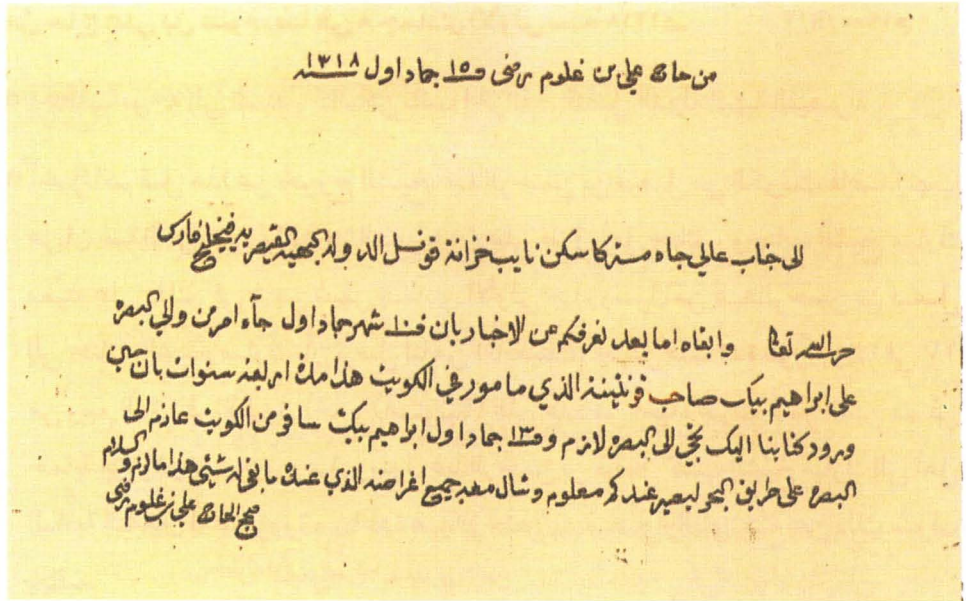 من حاج علي بن غلوم رضى في ١٥ جماد اول سنة ١٣١٨
الى جناب عالي جاه مستر كاسكن نايب خزانة قونسل الدولة البهية القيصرية في خليج فارس
حرسه الله تعالى وابقاه اما بعد نعرفكم عن الاخبار بان في ١٠ شهر جماد اول جآء امر من والي البصره
على ابراهيم بيك صاحب قرنتينة الذي مامور في الكويت هذا مدة اربعة سنوات بان حين
ورود كتابنا اليك تجي الى البصره لازم و في ١٣ جماد اول ابراهيم بيك سافر من الكويت عازم الى
البصره على طريق البحر ليصير عندكم معلوم وشال معه جميع اغراضه الذي عنده ما بقى له شيئ هذا ما لزم والسلام
صحيح الحاج علي بن غلوم رضى